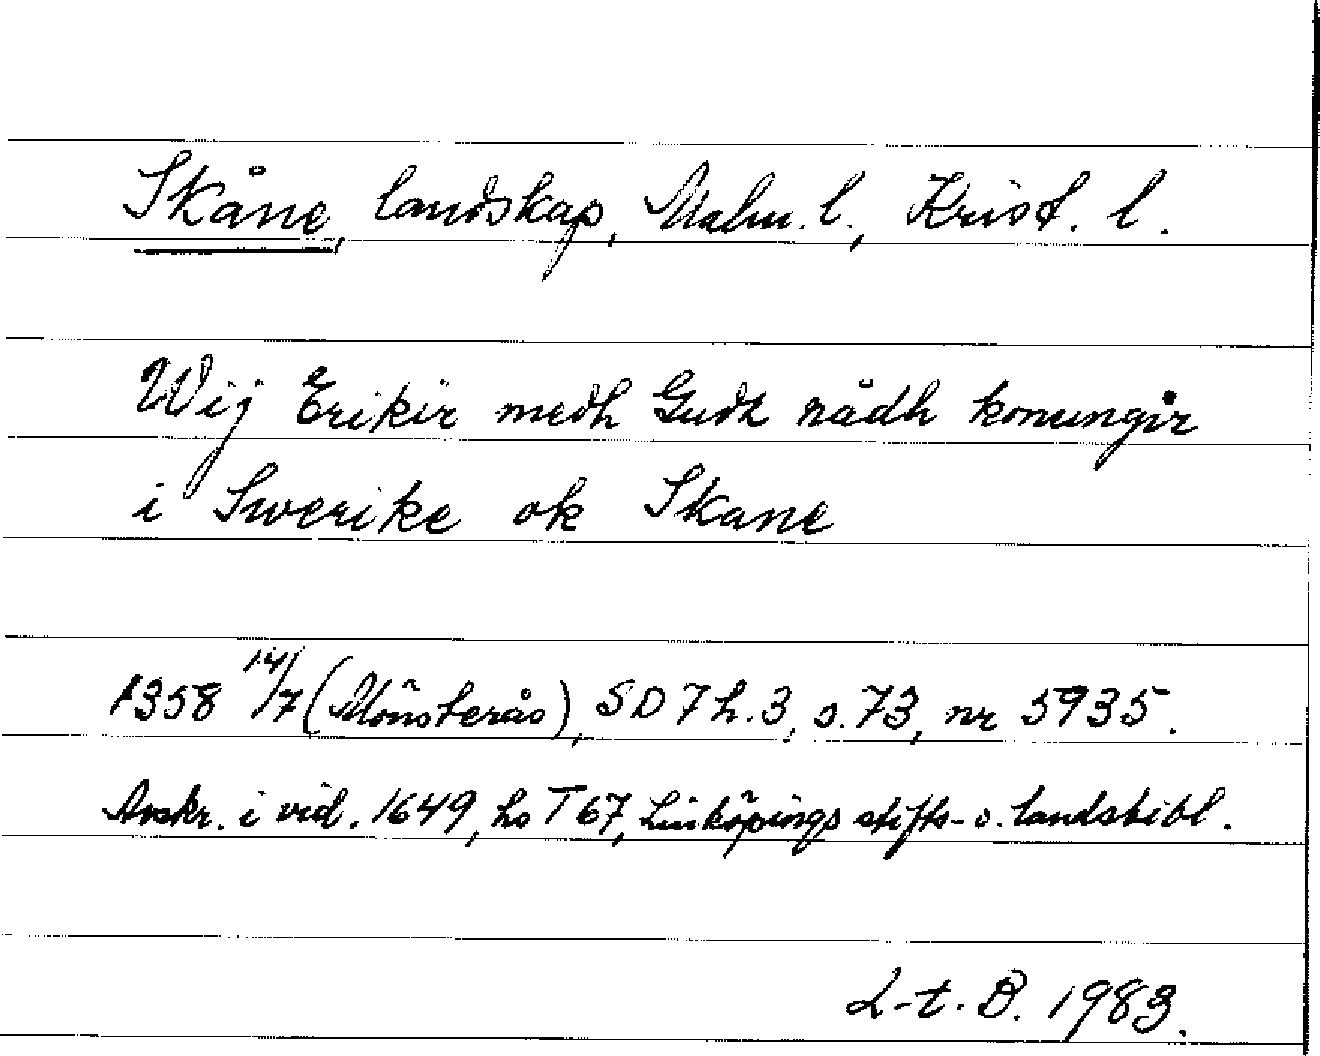 Skåne, landskap, Malm. l., Krist. l.
Wij Erikir medh Gudh nådh konungir
i Swerike ok Skane
1358 14/7 (Mönsterås), SD 7 h. 3, s. 73, nr 5935.
Avskr. i vid. 1649, hs T 67, Linköpings stifts- o. landsbibl.
L-t. B. 1983.